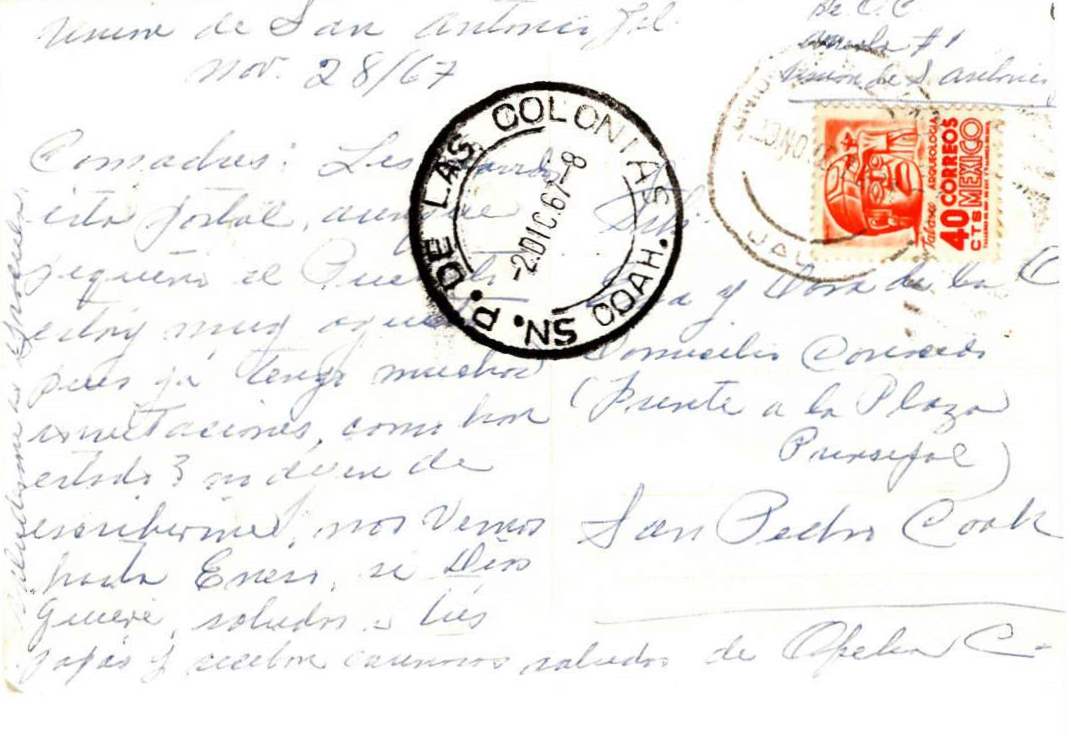 Union de San Antonio, Jal.
Nov. 28/67
Comadres: Les mando
esta postal, aunque
pequeño el Pueblo
estoy muy agusto
pues ya tengo muchas
invitaciones, como han
estado? no dejen de
escribirme, nos Vemos
hasta Enero, si Dios
quiere, saludos a tus
papás y reciban cariñosos saludos de Ofelia C-
Saludos a
Escuela #1
Union de S. Antonio
P. DE LAS COLONIAS
SN. COAH.
-2.DIC.67-8
JAL
Tabasco ARQUEOLOGIA
40 CTS
CORREOS
MEXICO
Srtas.
y Dora de la C
Domicilio Conocido
(Frente a la Plaza
Prinsipal)
San Pedro Coah